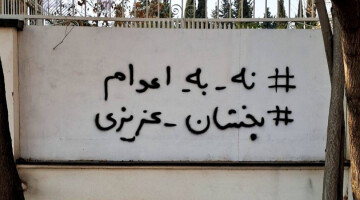 #نه_به_اعدام
#بخشان_عزیزی